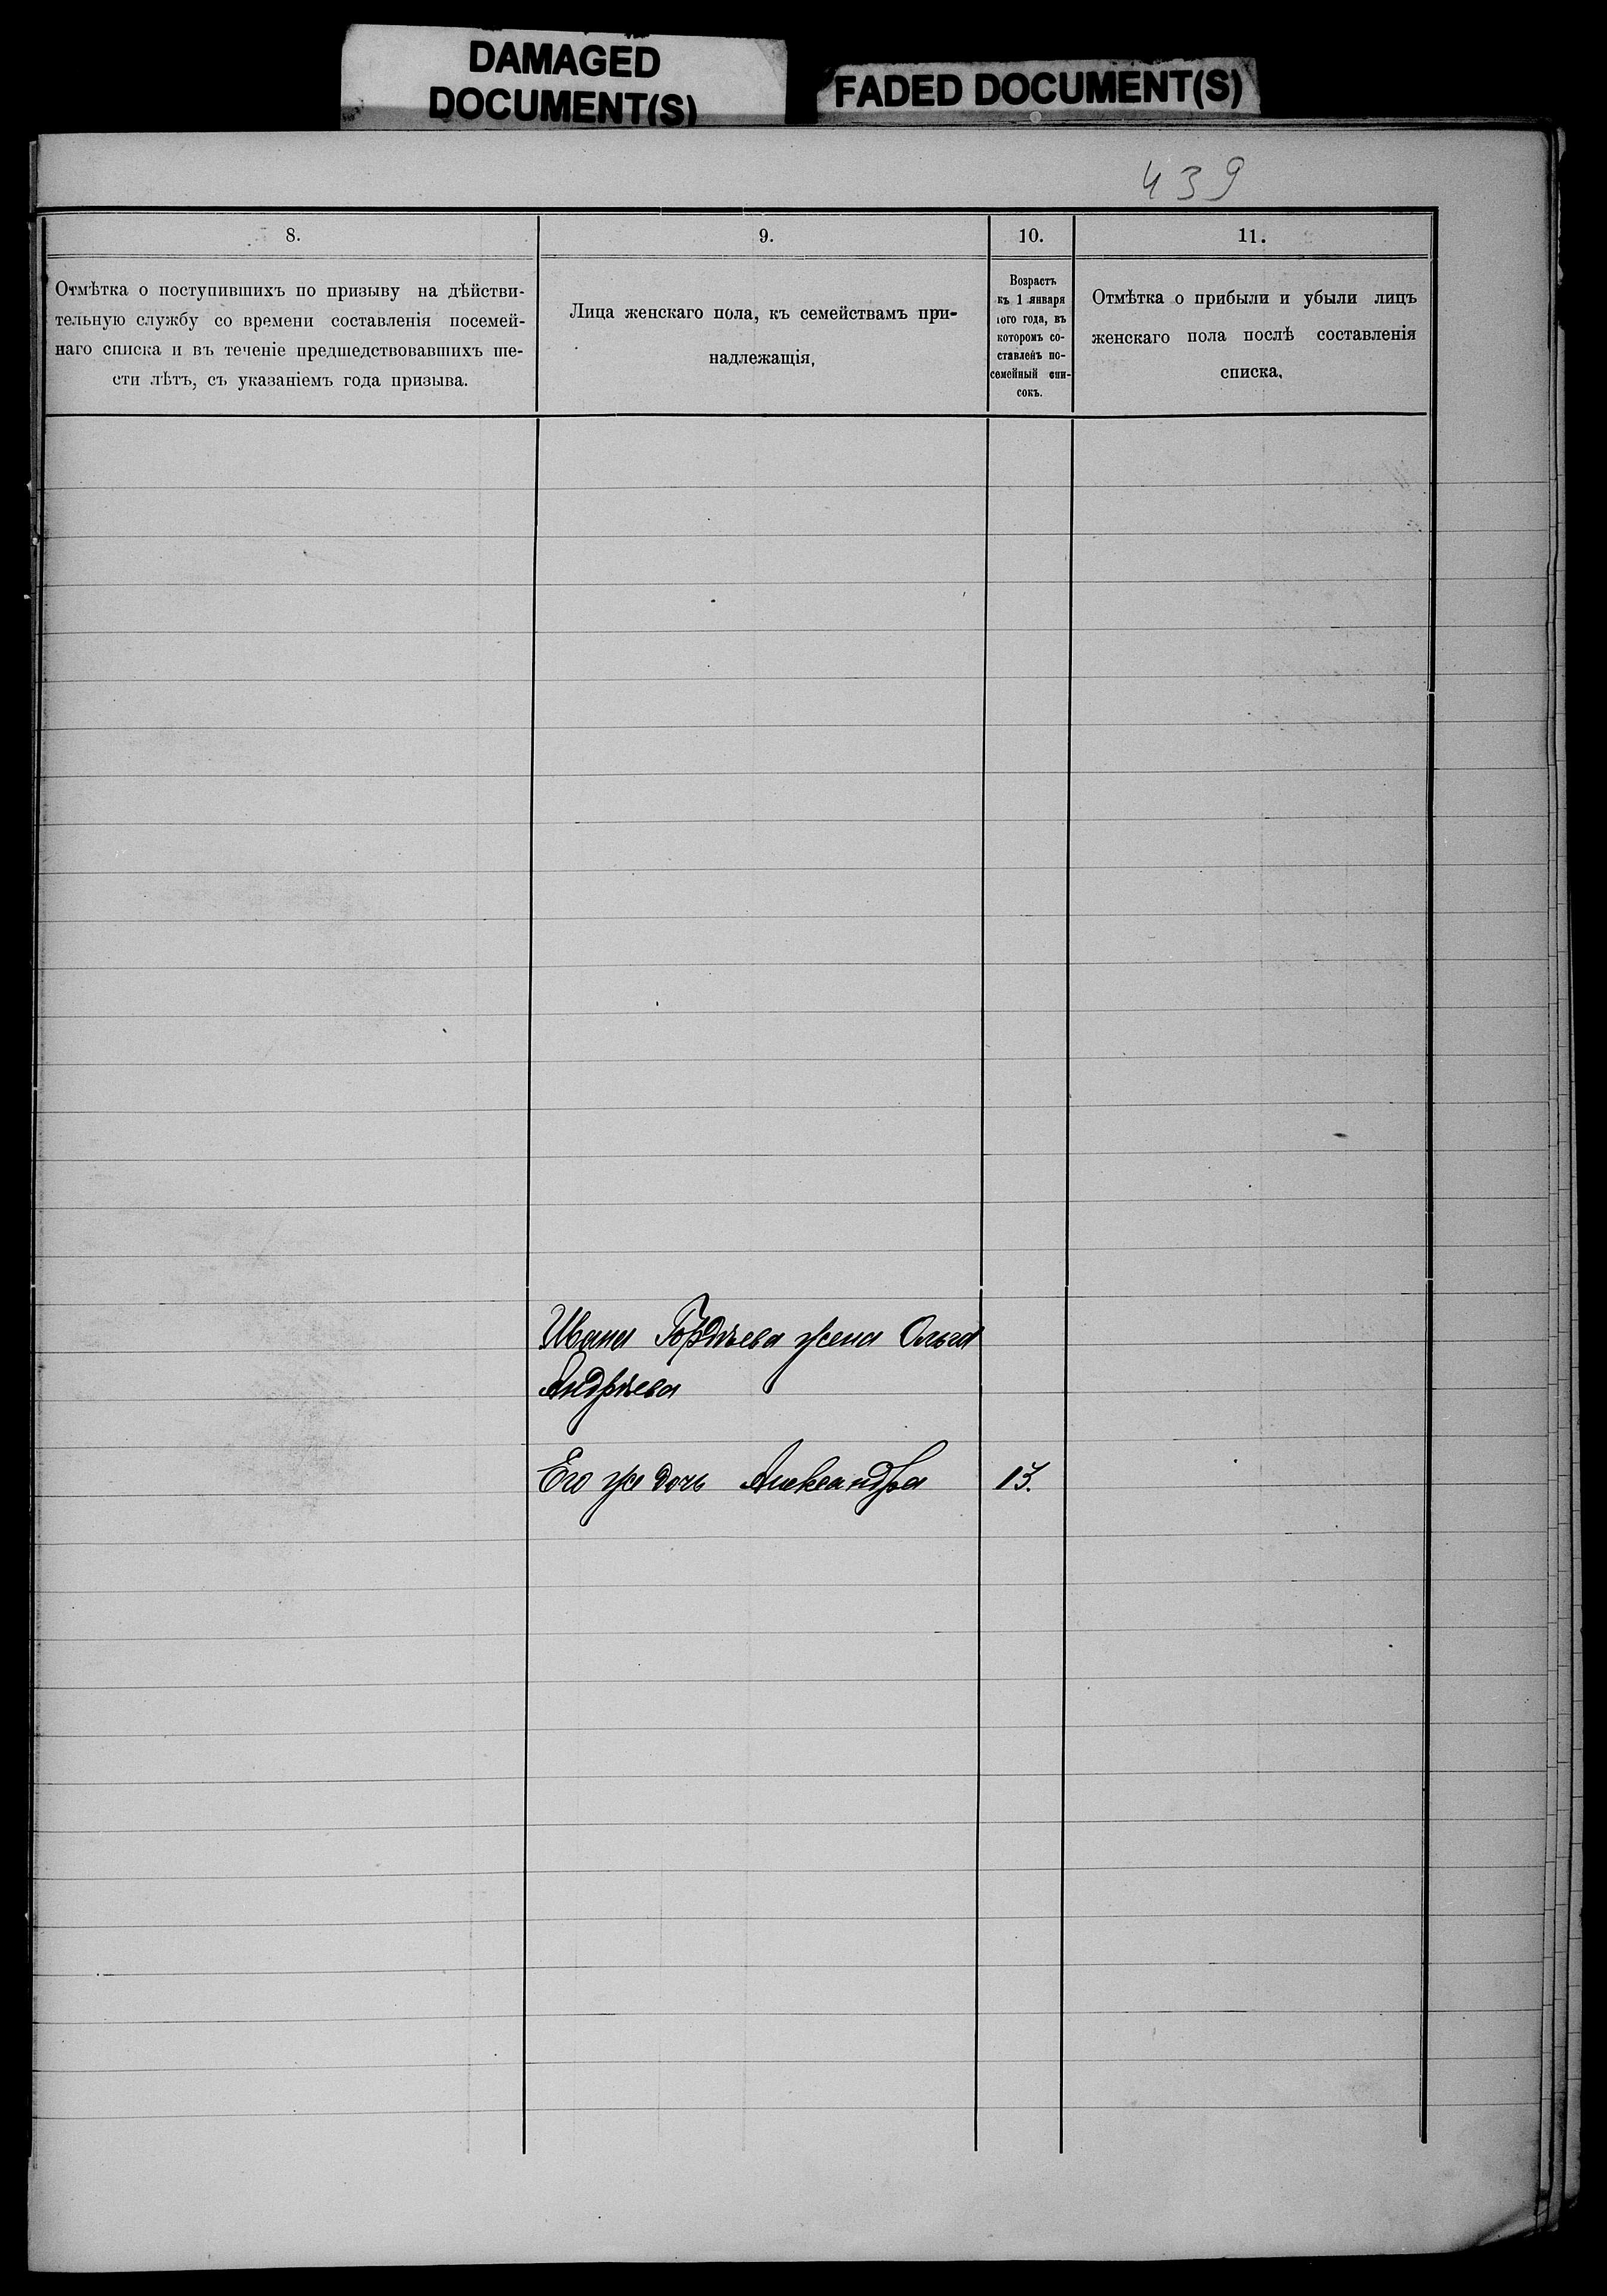 DAMAGED
DOCUMENT(S)
FADED DOCUMENT(S)
439
8.
Отмѣтка о поступившихъ по призыву на дѣйстви-
тельную службу со времени составленія посемей-
наго списка и въ теченіе предшедствовавшихъ ше-
сти лѣтъ, съ указаніемъ года призыва.
9.
Лица женскаго пола, къ семействамъ при-
надлежащія,
10.
Возрастъ
къ 1 января
того года, въ
которомъ со-
ставленъ по-
семейный спи-
сокъ.
11.
Отмѣтка о прибыли и убыли лицъ
женскаго пола послѣ составленія
списка,
Ивана Гордѣева жена Ольга
Андрѣева
Его же дочь Александра 13.